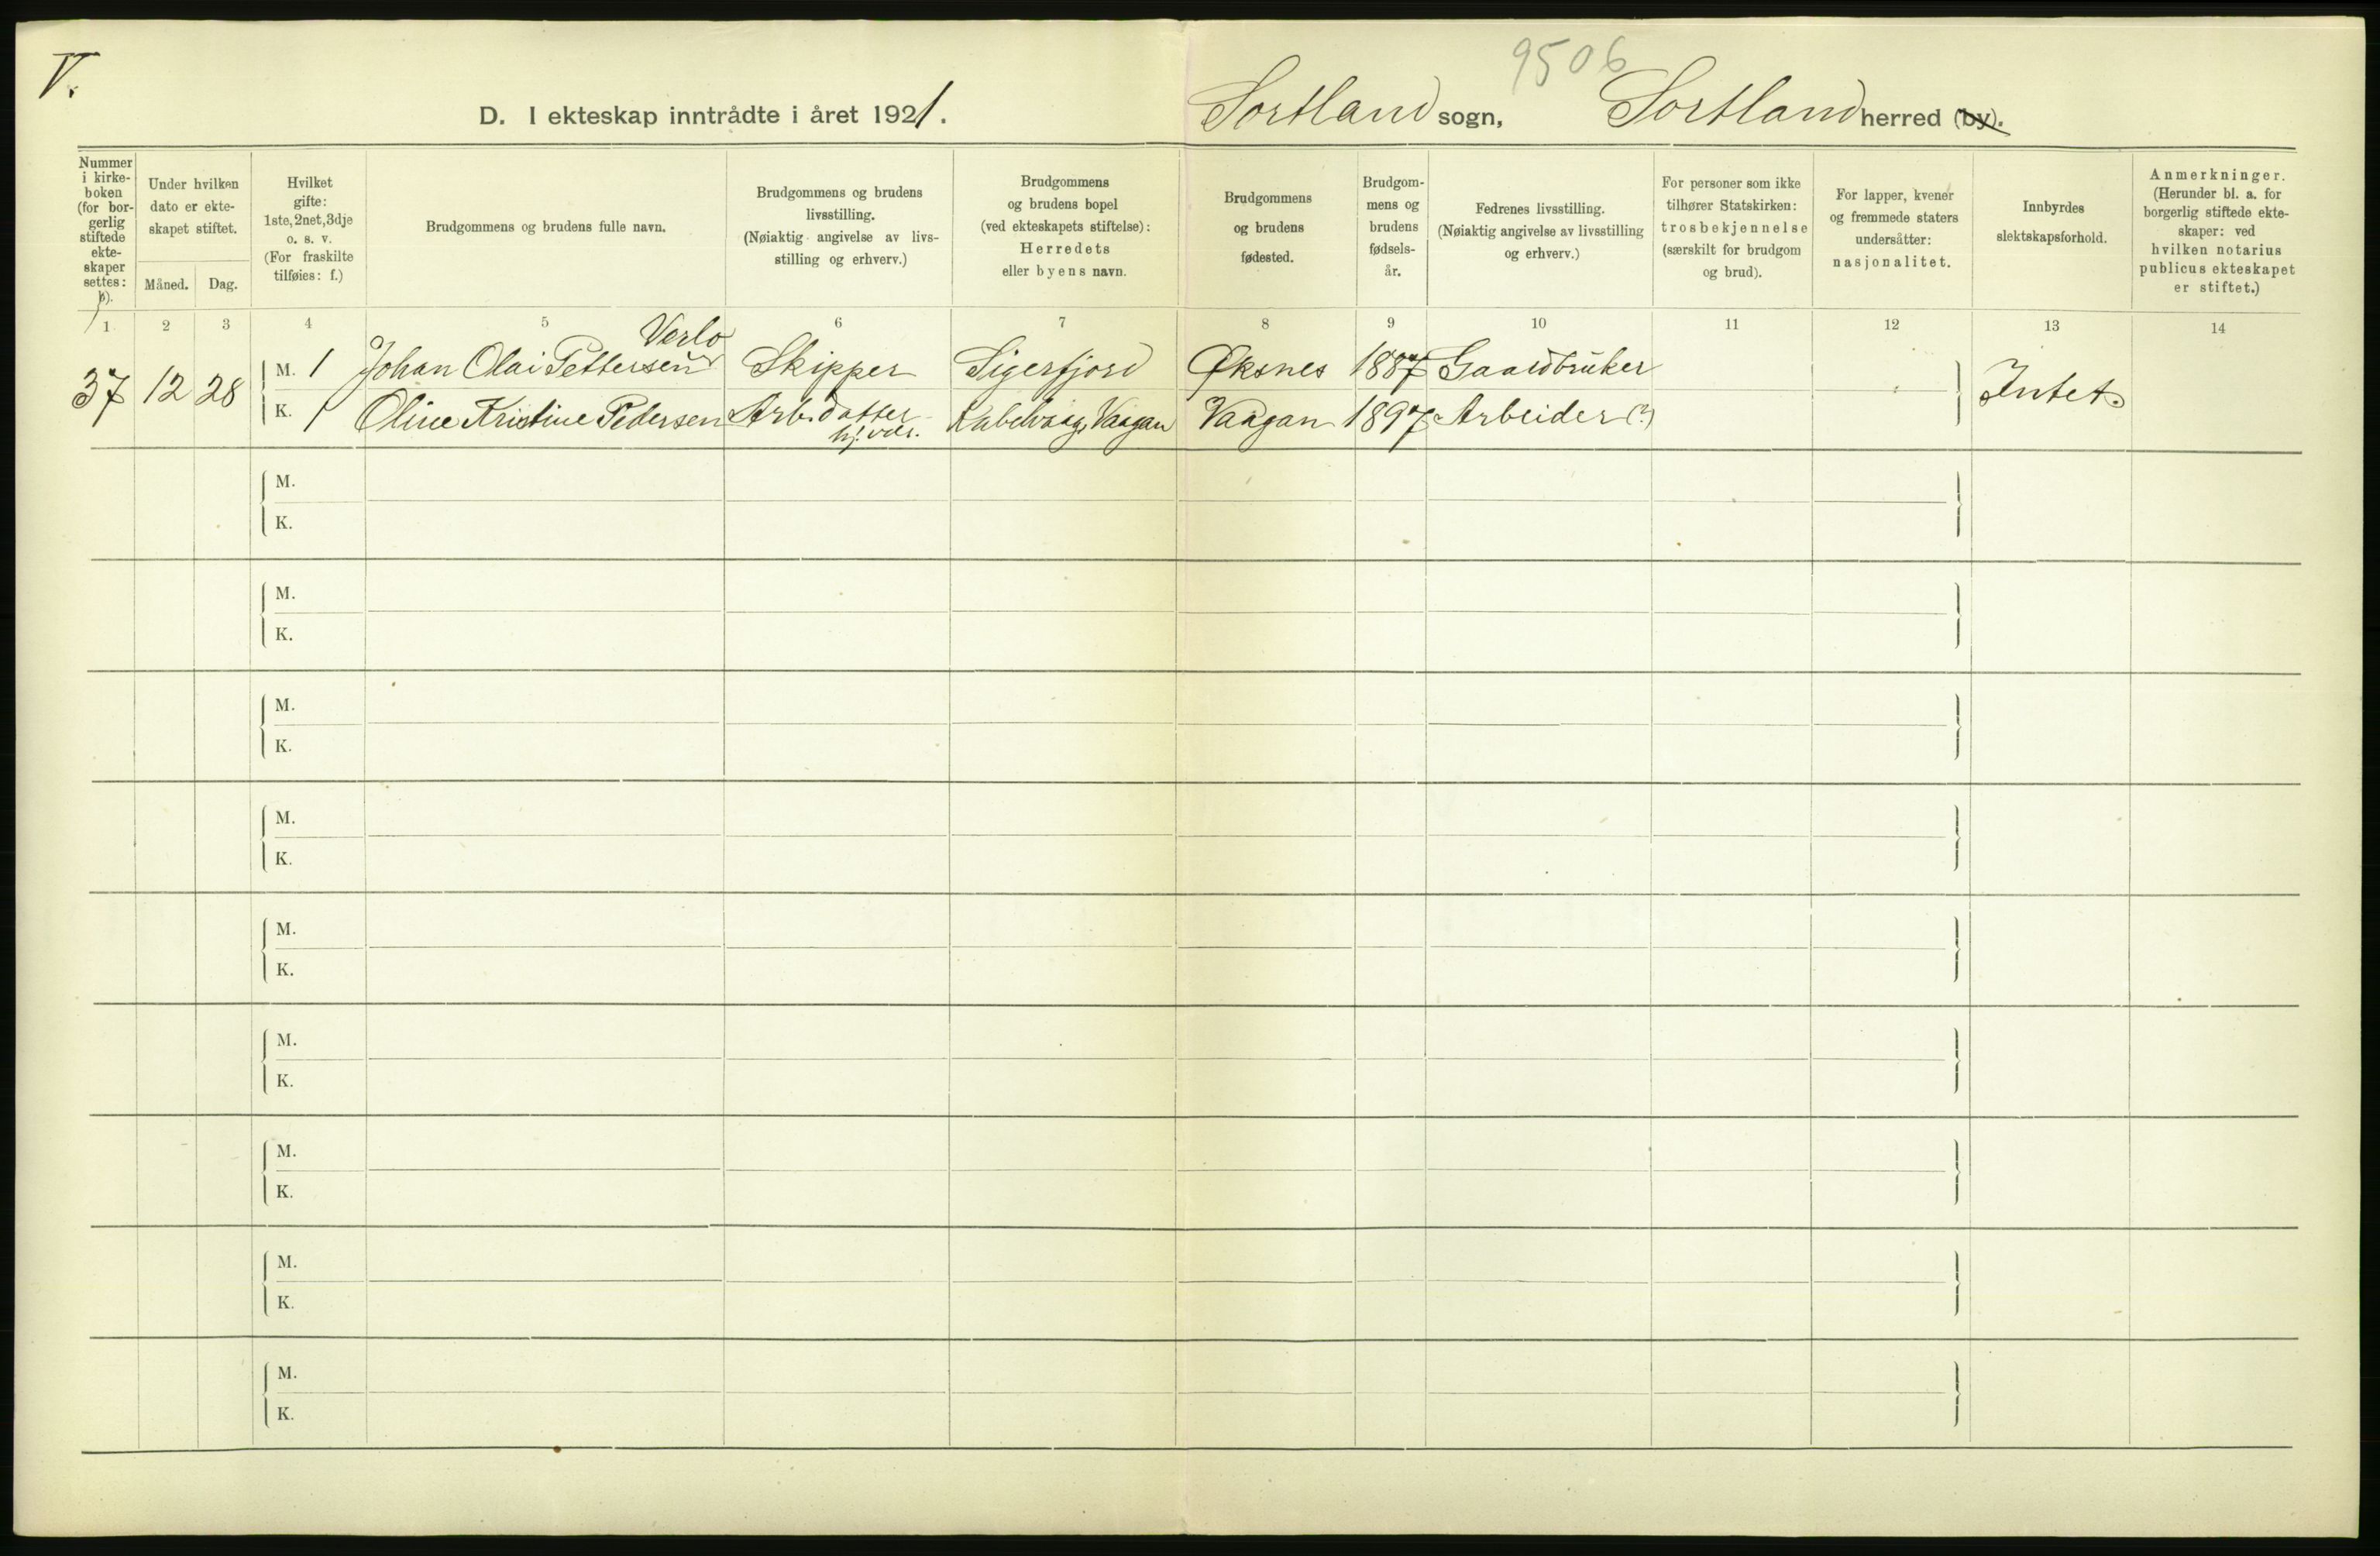 V.
9506
D. I ekteskap inntrådte i året 1921.
Sortland sogn, Sortland herred (by).
Nummer i kirke-boken (for bor-gerlig stiftede ekte-skaper settes: b).
Under hvilken dato er ekte-skapet stiftet.
Måned.
Dag.
Hvilket gifte: 1ste, 2net, 3dje o. s. v. (For fraskilte tilføies: f.)
Brudgommens og brudens fulle navn.
Brudgommens og brudens livsstilling. (Nøiaktig angivelse av livs-stilling og erhverv.)
Brudgommens og brudens bopel (ved ekteskapets stiftelse): Herredets eller byens navn.
Brudgommens og brudens fødested.
Brudgom-mens og brudens fødsels-år.
Fedrenes livsstilling. (Nøiaktig angivelse av livsstilling og erhverv.)
For personer som ikke tilhører Statskirken: trosbekjennelse (særskilt for brudgom og brud).
For lapper, kvener og fremmede staters undersåtter: nasjonalitet.
Innbyrdes slektskapsforhold.
Anmerkninger. (Herunder bl. a. for borgerlig stiftede ekte-skaper: ved hvilken notarius publicus ekteskapet er stiftet.)
1 2 3 4 5 6 7 8 9 10 11 12 13 14
Verlo
37 12 28 M. 1 Johan Olai Pettersen Skipper Sigerfjord Øksnes 1887 Gaardbruker Intet.
K. 1 Oline Kristine Pedersen Arb. datter Kabelvaag, Vaagan Vaagan 1897 Arbeider (?)
M.
K.
M.
K.
M.
K.
M.
K.
M.
K.
M.
K.
M.
K.
M.
K.
M.
K.